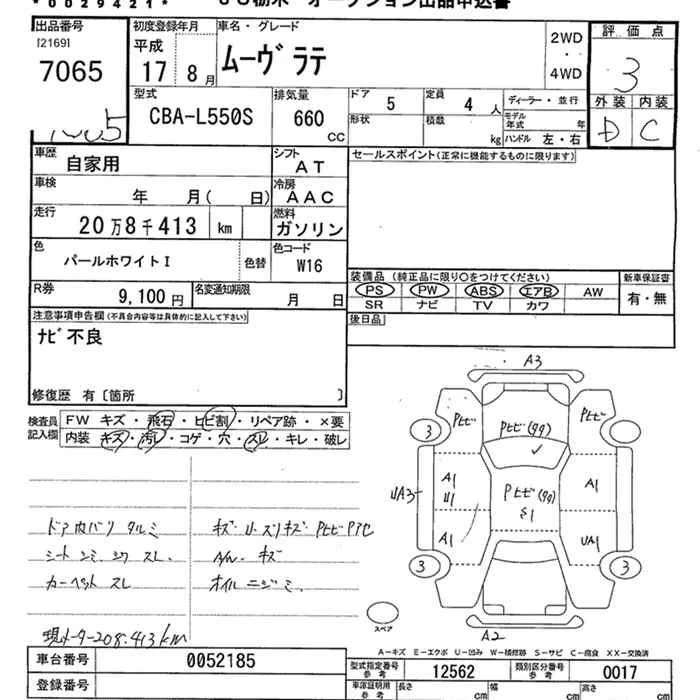 *0029421* ＪＵ栃木 オークション出品申込書
出品番号 [2169] 7065
初度登録年月 平成 17 8 月
車名・グレード ムーヴ ラテ
2WD ・ 4WD
評価点 3
外装 内装 D C
型式 CBA-L550S
排気量 660 CC
ドア 5 定員 4 人
ディーラー・並行
形状 積載 kg
モデル年式 年
ハンドル 左・右
車歴 自家用
シフト AT
セールスポイント(正常に機能するものに限ります)
車検 年 月( 日)
冷房 AAC
走行 20万8千413 km
燃料 ガソリン
色 パールホワイトI 色替
色コード W16
装備品 (純正品に限り○をつけてください)
PS PW ABS エアB AW
SR ナビ TV カワ
新車保証書 有・無
R券 9,100円
名変通知期限 月 日
後日品
注意事項申告欄(不具合内容等は具体的に記入して下さい)
ナビ不良
修復歴 有〔箇所 〕
検査員記入欄 FW キズ・飛石・ヒビ割・リペア跡・×要
内装 キズ・汚レ・コゲ・穴・スレ・キレ・破レ
ドア内バリ タルミ
シート シミ シワ スレ.
カーペット スレ
キズ・U・スリキズ・PヒビPTC
A/W・キズ
オイルニジミ
現メーター208.413km
A3
Pヒビ Pヒビ(99) Pヒビ
3
A1 U1 A1
UA3
Pヒビ(99) S1
A1 UA1
3 3
A2
スペア
A－キズ E－エクボ U－凹み W－補修跡 S－サビ C－腐食 XX－交換済
車台番号 0052185
登録番号
型式指定番号 参考 12562
類別区分番号 参考 0017
車庫証明用 参考 長さ cm 幅 cm 高さ cm